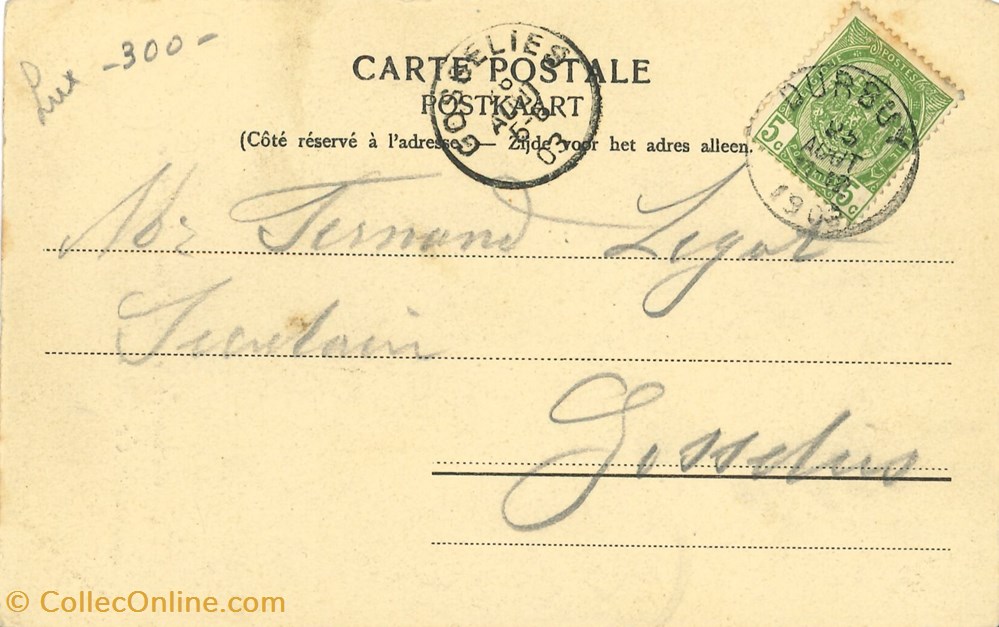 Lux - 300 -
CARTE POSTALE
POSTKAART
(Côté réservé à l'adresse. — Zijde voor het adres alleen.
GOSSELIES
AOUT
5-6
03
POSTES
5c 5c
DURBUY
25
AOUT
12
1903
Mr Fernand Legat
Secretain
Gosselies
© CollecOnline.com